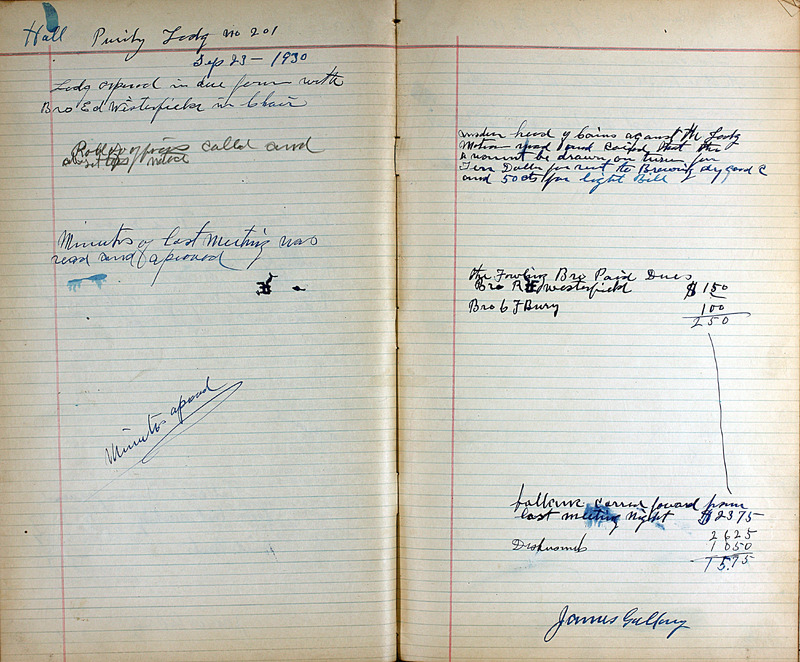 Hall Purity Lodg no 201
Sep 23 - 1930
Lodg opened in due form with
Bro Ed Westerfield in Chair
Roll of officers called and
Minutes of last meeting was
read and aproved
Minutes aproved
under head of bains against the Lodg
Motion made and carried that the
amount be drawn on tresu for
Tenn Dollar for rent to Brewing dry good C
and 50 cts for light Bill
the Fowling Bro Paid Dues
Bro R E Westerfield $ 150
Bro C F Bury 100
250
ballance carried foward from
last meeting night $ 2375
2625
1050
1575
James Gallony